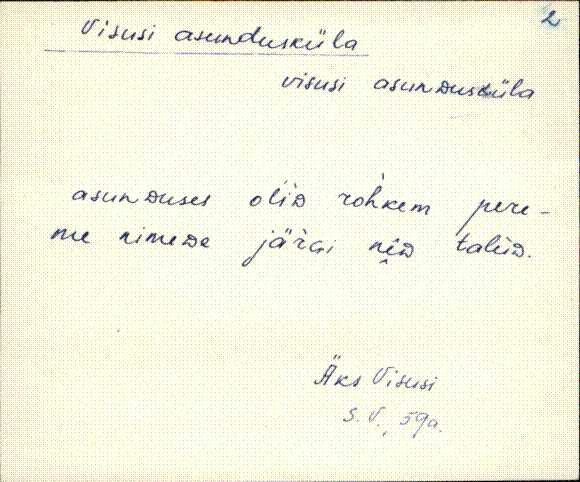 2
Visusi asundusküla
visusi asunDusküla
asunDuses oliD rohkem pere-
me nimeDe järGi neD taluD.
Äks Visusi
S. V., 59a.